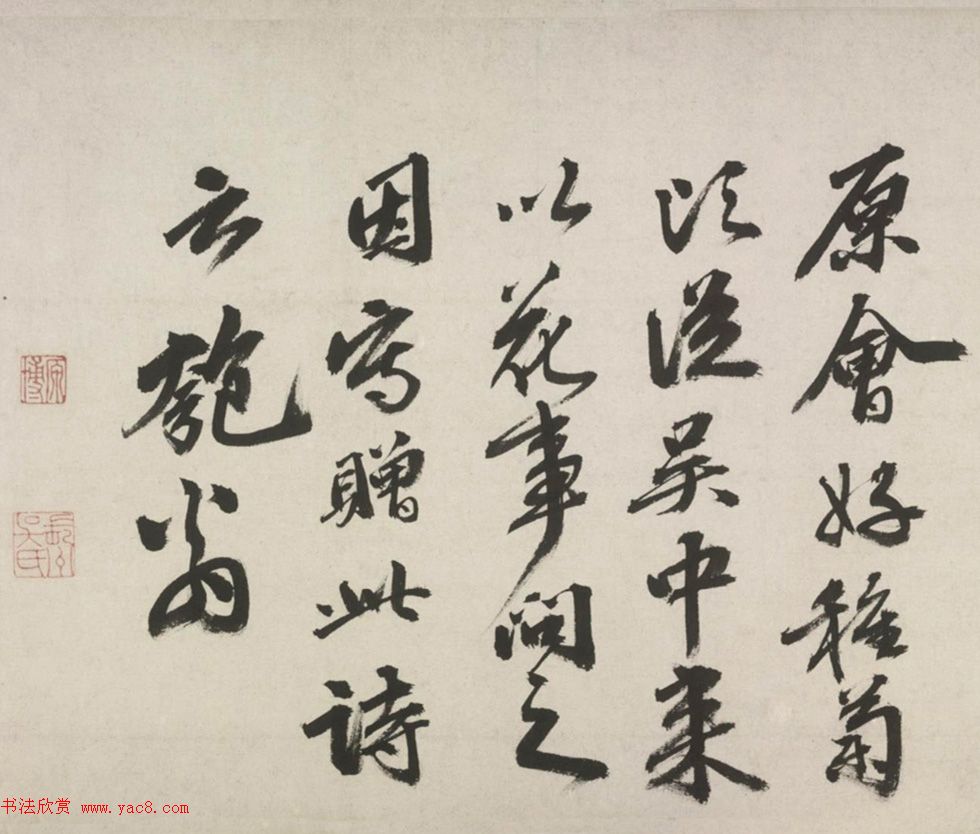 原會好種菊
頃從吳中來
以花事問之
因寫贈此詩
云匏翁
原博
书法欣赏 www.yac8.com